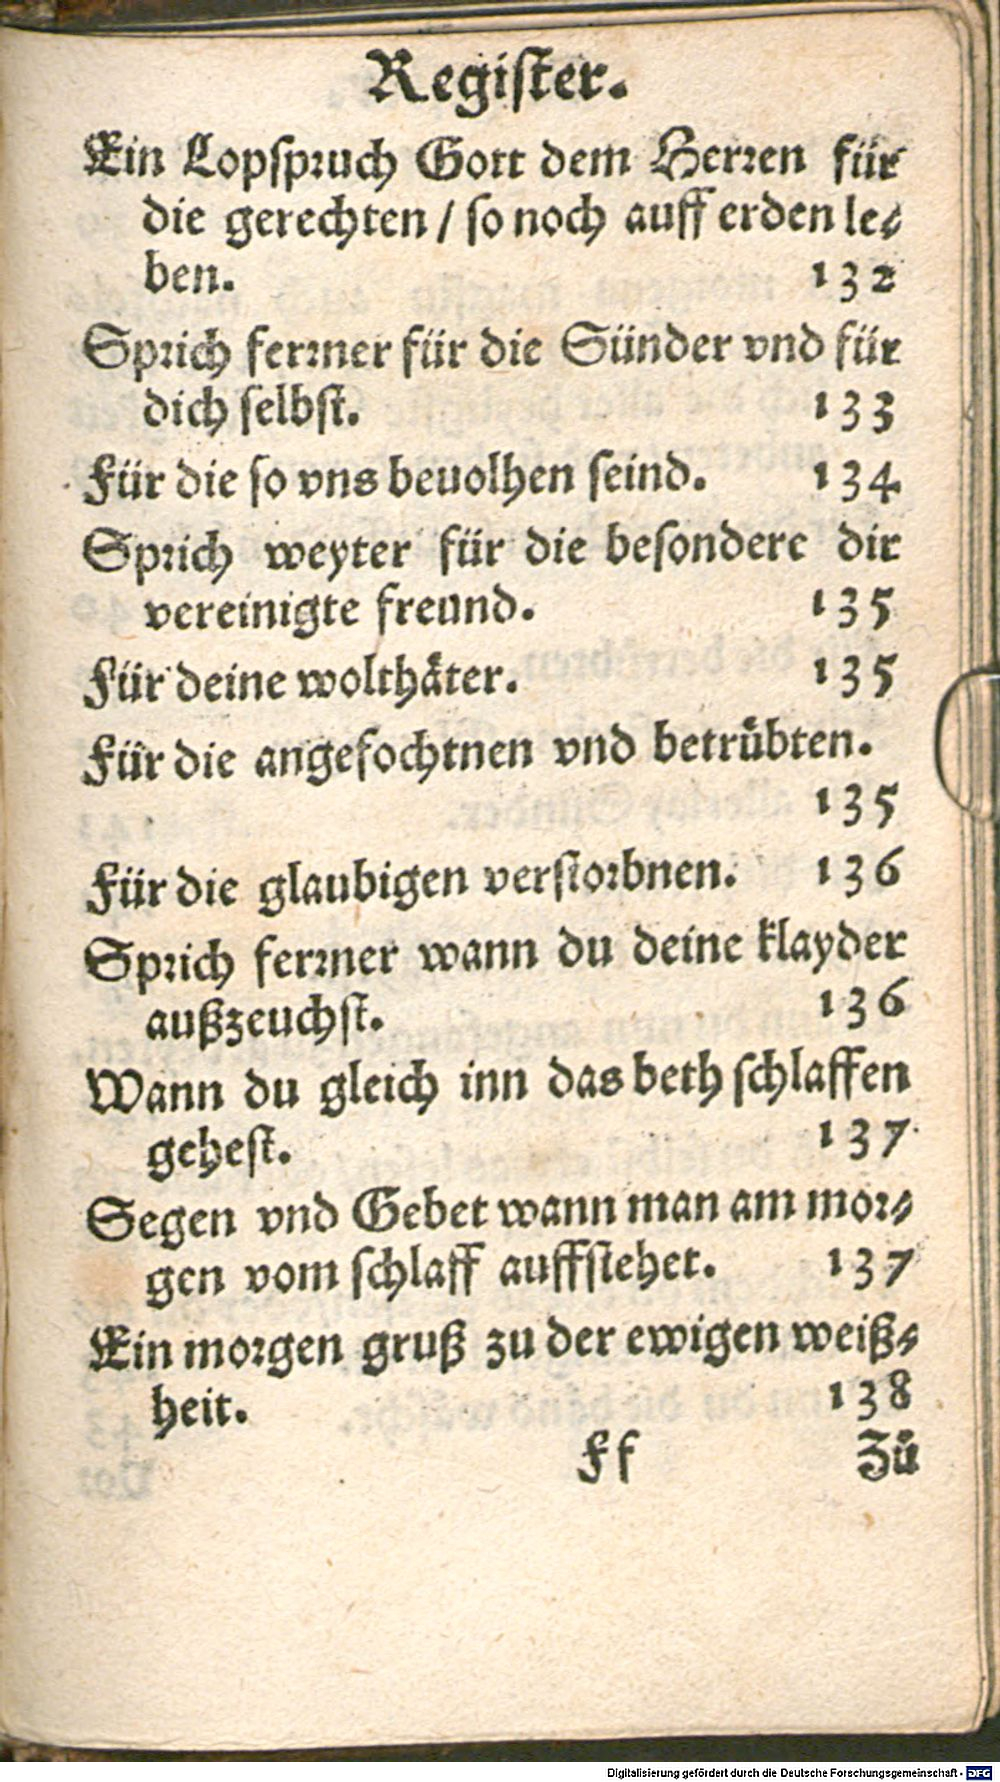 Register.
Ein Lopspruch Gott dem Herren für
die gerechten / so noch auff erden le⸗
ben. 132
Sprich ferrner für die Sünder vnd für
dich selbst. 133
Für die so vns beuolhen seind. 134
Sprich weyter für die besondere dir
vereinigte freund. 135
Für deine wolthäter. 135
Für die angefochtnen vnd betrůbten.
135
Für die glaubigen verstorbnen. 136
Sprich ferrner wann du deine klayder
außzeuchst. 136
Wann du gleich inn das beth schlaffen
gehest. 137
Segen vnd Gebet wann man am mor⸗
gen vom schlaff auffstehet. 137
Ein morgen gruß zu der ewigen weiß⸗
heit. 138
Ff Zů
Digitalisierung gefördert durch die Deutsche Forschungsgemeinschaft - DFG